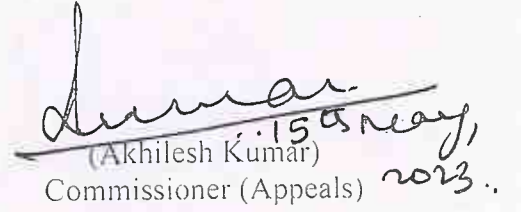 Kumar
15th May,
(Akhilesh Kumar)
Commissioner (Appeals) 2023.